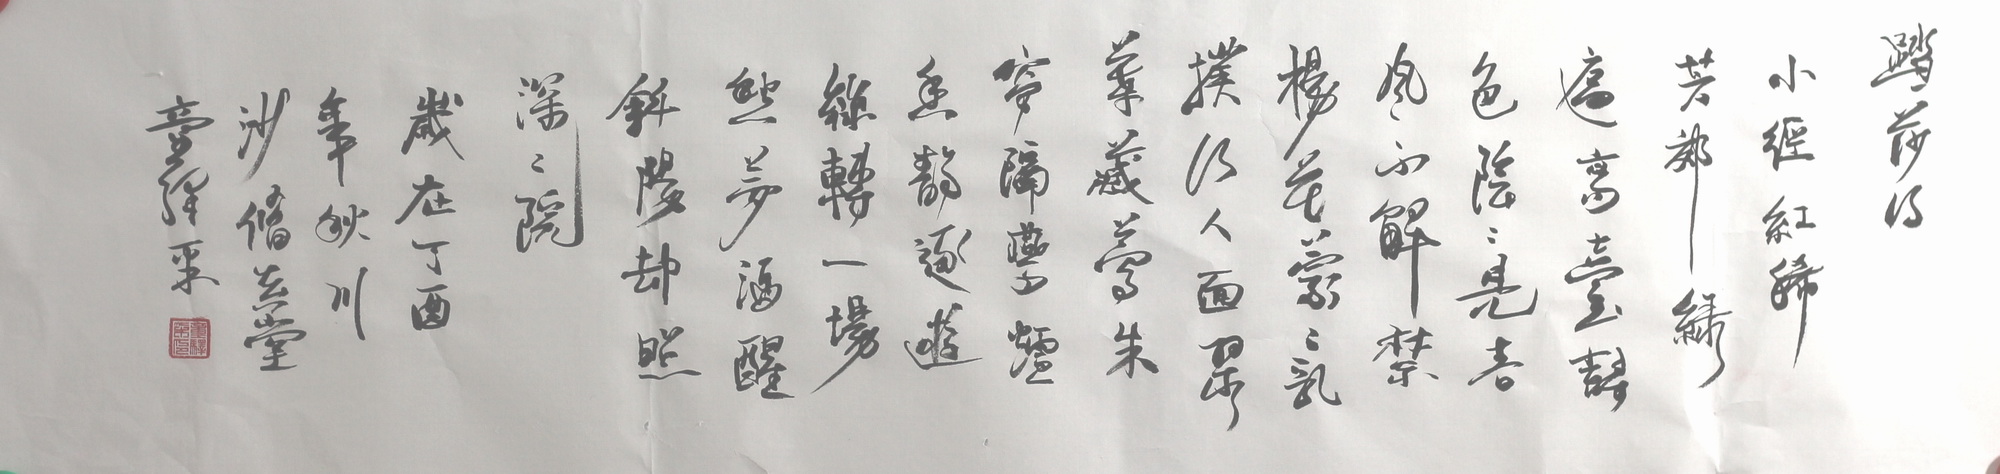 踏莎行
小經紅稀
芳郊綠
遍高臺樹
色陰〻見春
風不解禁
楊花蒙〻亂
撲行人面翠
葉藏鶯朱
帘隔燕爐
香靜逐遊
絲轉一場
愁夢酒醒
斜陽却照
深〻院
歲在丁酉
年秋川
沙脩堂
童